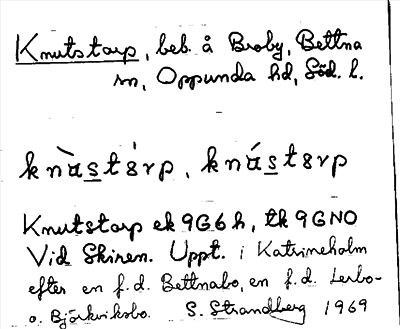 Knutstorp, beb. å Broby, Bettna
sn, Oppunda hd, Söd. l.
knùstȣ̀rp, knústȣrp
Knutstorp ek 9G6h, tk 9GNO
Vid Skiren. Uppt. i Katrineholm
efter en f.d. Bettnabo, en f.d. Lerbo-
o. Björkviksbo. S. Strandberg 1969